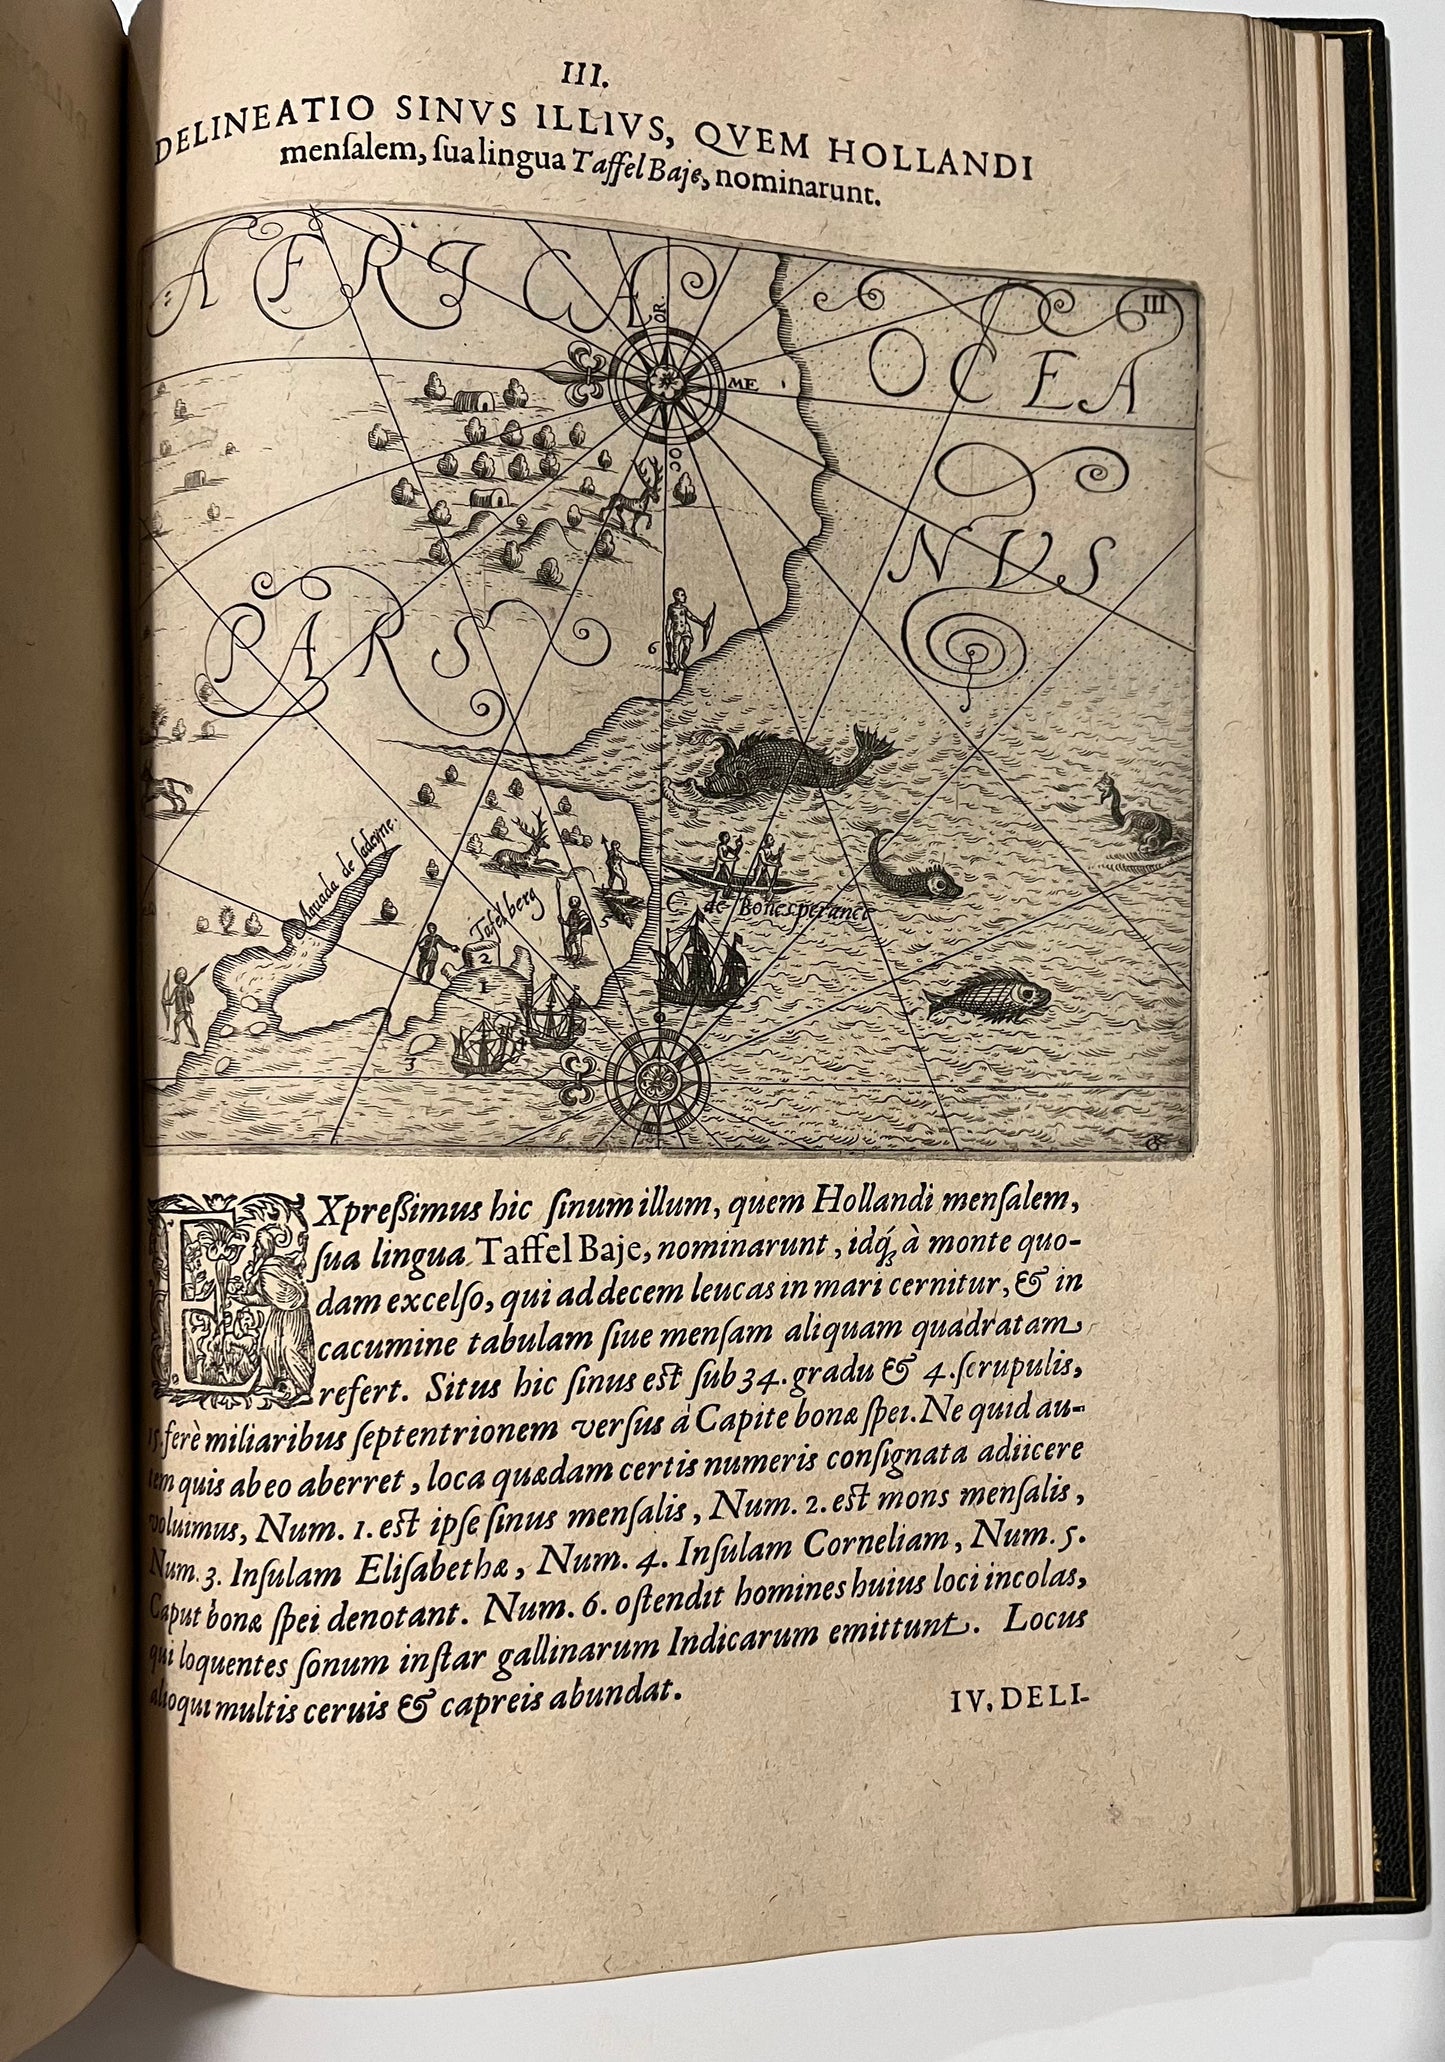 III.
DELINEATIO SINVS ILLIVS, QVEM HOLLANDI
menſalem, ſua lingua Taffel Baje, nominarunt.
AFRICAE
OR.
III
OCEA
ME
OC
NVS
PARS
6
Aguada de
Tafelberg
C. de Bonesperance
5
2
1
4
3
EXpreſſimus hic ſinum illum, quem Hollandi menſalem,
ſua lingua Taffel Baje, nominarunt, idq́ꝫ à monte quo-
dam excelſo, qui ad decem leucas in mari cernitur, & in
cacumine tabulam ſiue menſam aliquam quadratam
refert. Situs hic ſinus eſt ſub 34. gradu & 4. ſcrupulis,
15. ferè miliaribus ſeptentrionem verſus à Capite bonæ ſpei. Ne quid au-
tem quis ab eo aberret, loca quædam certis numeris conſignata adiicere
voluimus, Num. 1. eſt ipſe ſinus menſalis, Num. 2. eſt mons menſalis,
Num. 3. Inſulam Eliſabethæ, Num. 4. Inſulam Corneliam, Num. 5.
Caput bonæ ſpei denotant. Num. 6. oſtendit homines huius loci incolas,
qui loquentes ſonum inſtar gallinarum Indicarum emittunt. Locus
alioqui multis ceruis & capreis abundat.
IV. DELI-